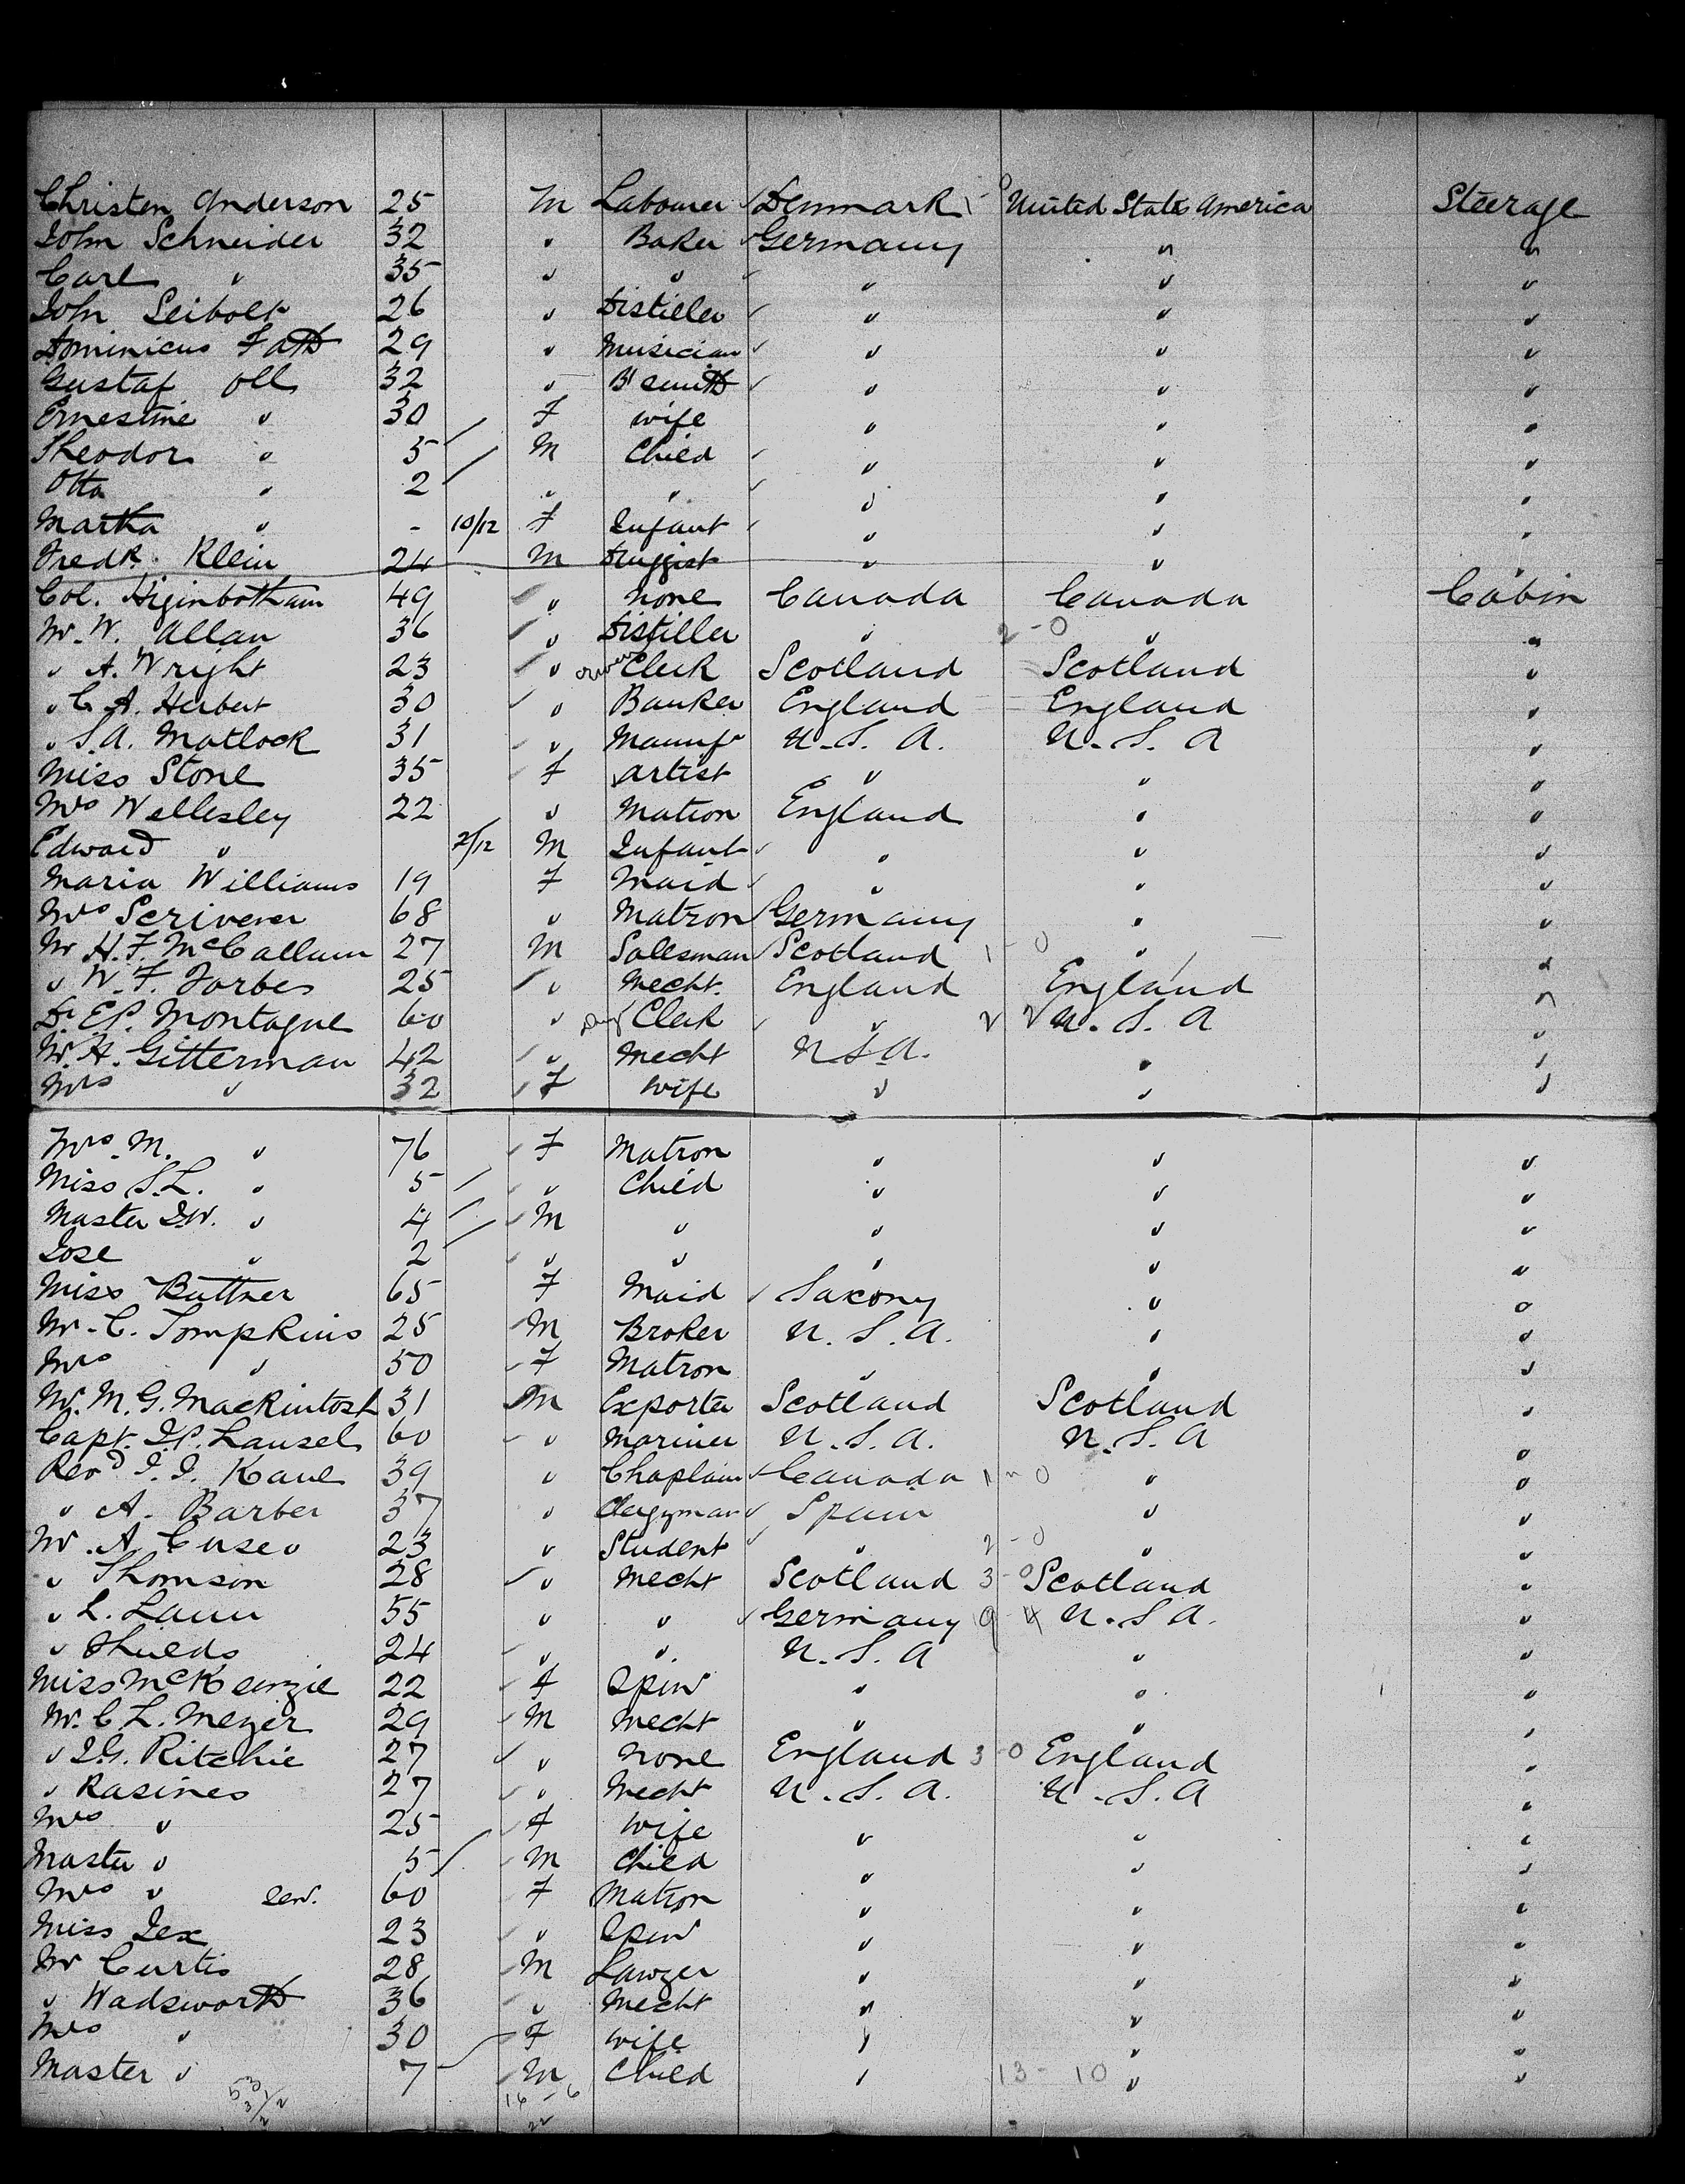 Christen Anderson 25 M Labourer Denmark United States America Steerage
John Schneider 32 " Baker Germany " "
Carl " 35 " " " " "
John Leibolt 26 " Distiller " " "
Dominicus Fath 29 " Musician " " "
Gustaf Oll 32 " Bl smith " " "
Ernestine " 30 F wife " " "
Theodor " 5 M Child " " "
Otto " 2 " " " " "
Martha " - 10/12 F Infant " " "
Fredk. Klein 24 M Druggist " " "
Col. Higinbotham 49 " None Canada Canada Cabin
Mr. W. Allan 36 " Distiller " 2-0 " "
" A. Wright 23 " Clerk Scotland Scotland "
" C. A. Herbert 30 " Banker England England "
" S. A. Matlock 31 " Manufr U. S. A. U. S. A "
Miss Stone 35 F Artist " " "
Mrs Wellesley 22 " Matron England " "
Edward " 2/12 M Infant " " "
Maria Williams 19 F Maid " " "
Mrs Scrivener 68 " Matron Germany " "
Mr H. F. McCallum 27 M Salesman Scotland 1-0 " "
" W. F. Forbes 25 " Mecht. England England "
Dr. E. P. Montague 60 " Clerk " 2 U. S. A "
Mr. H. Gitterman 42 " Mecht U S A. " "
Mrs " 32 F wife " " "
Mrs. M. " 76 F Matron " " "
Miss S. L. " 5 " Child " " "
Master I. W. " 4 M " " " "
Jose " 2 " " " " "
Miss Buttner 65 F Maid Saxony " "
Mr. C. Tompkins 25 M Broker U. S. A. " "
Mrs " 50 F Matron " " "
Mr. M. G. Mackintosh 31 M Exporter Scotland Scotland "
Capt. J. P. Lansel 60 " Mariner U. S. A. U. S. A "
Revd J. J. Kane 39 " Chaplain Canada 1-0 " "
" A. Barber 37 " Clergyman Spain " "
Mr. A. Cuseo 23 " Student " 2-0 " "
" Thomson 28 " Mecht Scotland 3-0 Scotland "
" L. Laun 55 " " Germany 9-4 U. S. A. "
" Shields 24 " " U. S. A " "
Miss McKenzie 22 F Spinr " " "
Mr. C. L. Meyer 29 M Mecht " " "
" J. G. Ritchie 27 " None England 3-0 England "
" Rasines 27 " Mecht U. S. A. U. S. A "
Mrs " 25 F Wife " " "
Master " 5 M Child " " "
Mrs " Senr. 60 F Matron " " "
Miss Jex 23 " Spinr " " "
Mr Curtis 28 M Lawyer " " "
" Wadsworth 36 " Mecht " " "
Mrs " 30 F wife " " "
Master " 7 M Child " 13-10 " "
16-6
22